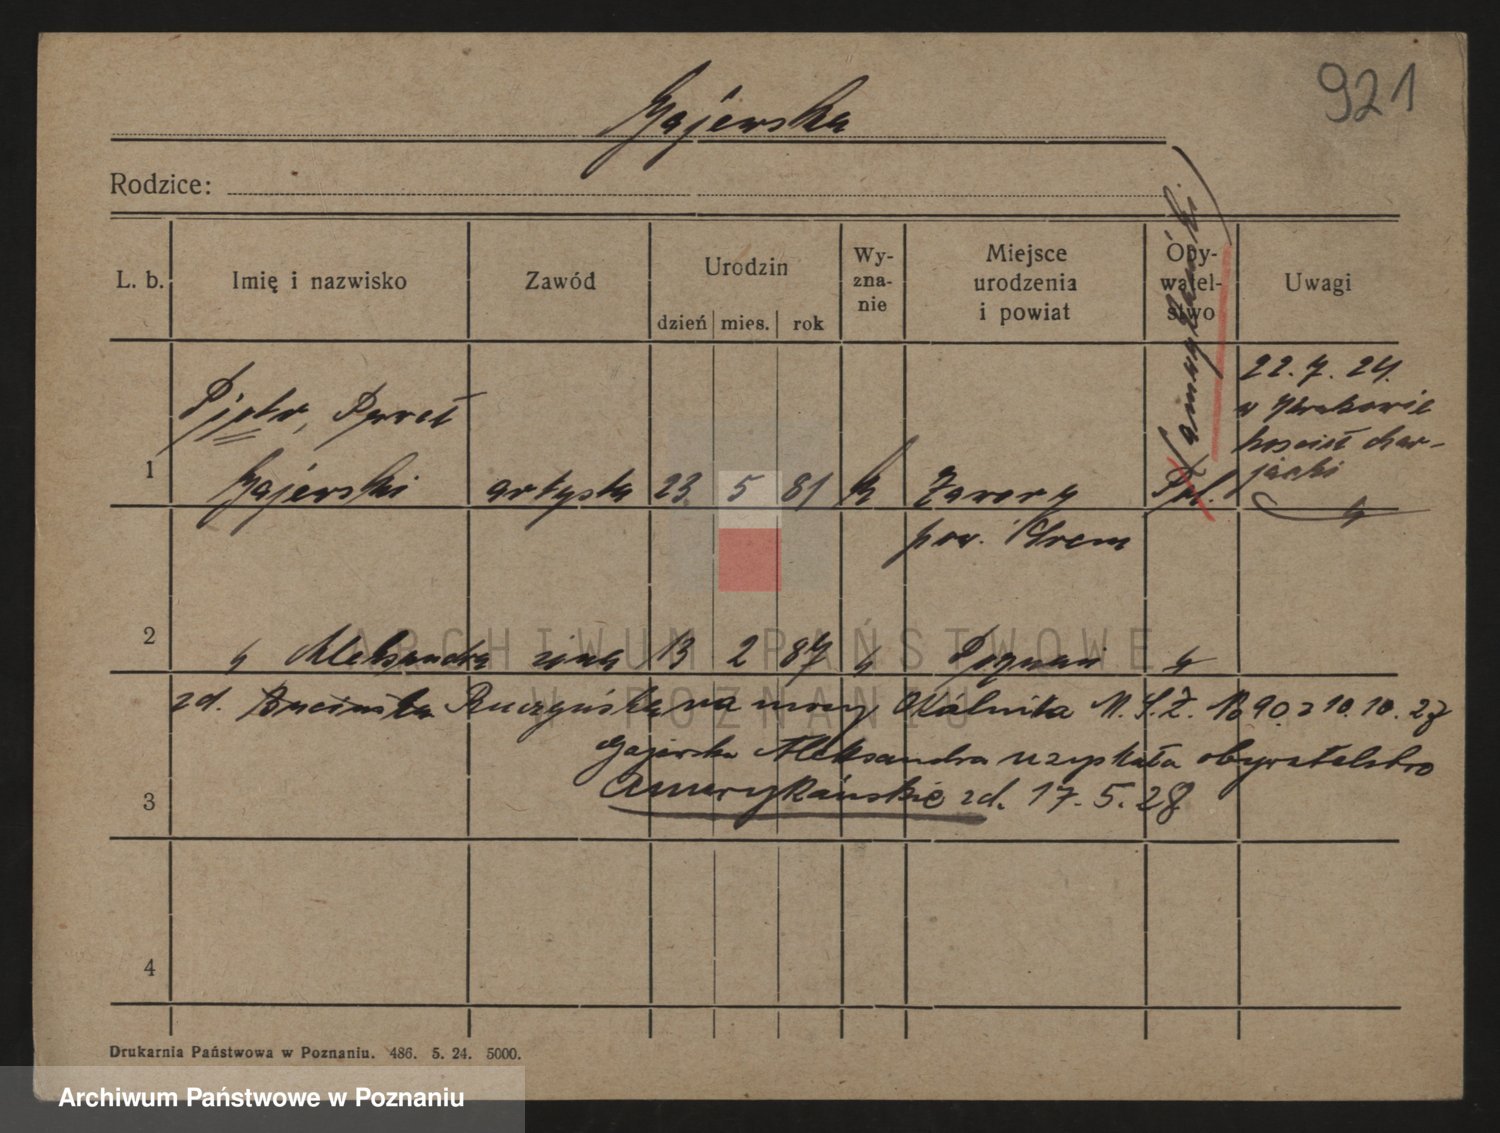 921
Gajewska
Rodzice:
L. b.
Imię i nazwisko
Zawód
Urodzin
dzień mies. rok
Wy-
zna-
nie
Miejsce
urodzenia
i powiat
Oby-
watel-
stwo
Uwagi
amerykański
1
Piotr, Paweł
Gajewski
artysta
23 5 81
k
Zawory
pow. Śrem
Pol.
22. 7. 24.
w Krakowie
kościół mar-
jacki
2
" Aleksandra
żona
13 2 87
"
Poznań
"
zd. Ruczyńska na mocy Okólnika M.S.Z. 90. z 10.10.27
3
Gajewska Aleksandra uzyskała obywatelstwo
Amerykańskie zd. 17. 5. 28
4
Drukarnia Państwowa w Poznaniu. 486. 5. 24. 5000.
ARCHIWUM PAŃSTWOWE
W POZNANIU
Archiwum Państwowe w Poznaniu